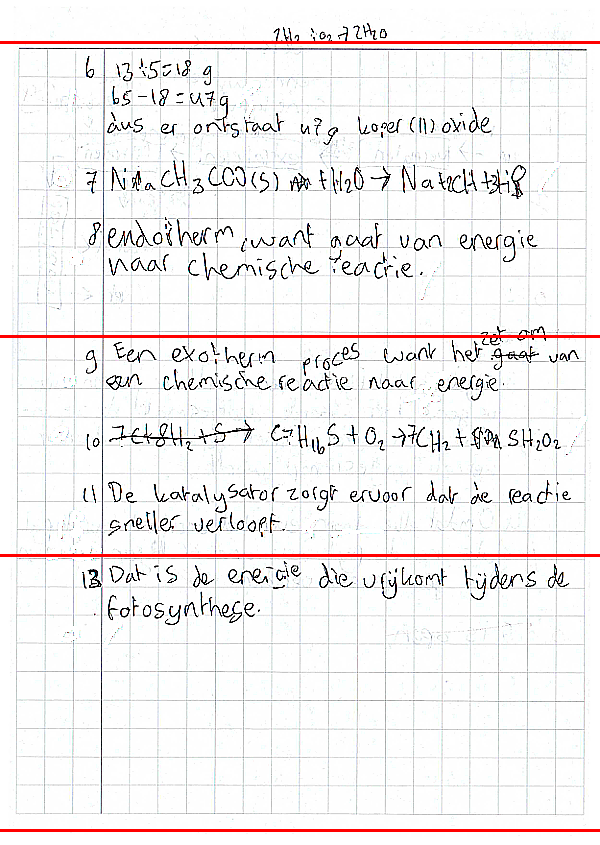 2H₂ + O₂ → 2H₂O
6 13 : 5 = 18 g
65 - 18 = 47g
dus er ontstaat 47g koper(II) oxide
7 NaCH₃COO(s) + H₂O →
8 endotherm, want gaat van energie
naar chemische reactie.
9 Een exotherm proces want het zet om van
een chemische reactie naar energie.
10 C7H₁₆S + O₂ → 7CH₂ + SH₂O₂
11 De katalysator zorgt ervoor dat de reactie
sneller verloopt.
13 Dat is de energie die vrijkomt tijdens de
fotosynthese.